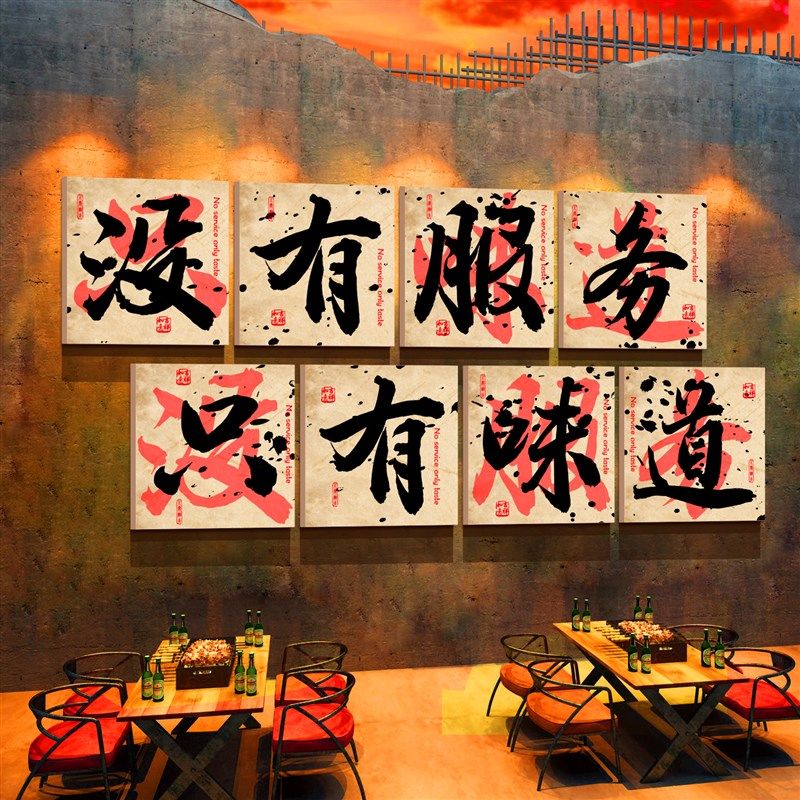 没有服务
No service only taste
No service only taste
No service only taste
No service only taste
只有味道
No service only taste
No service only taste
No service only taste
No service only taste